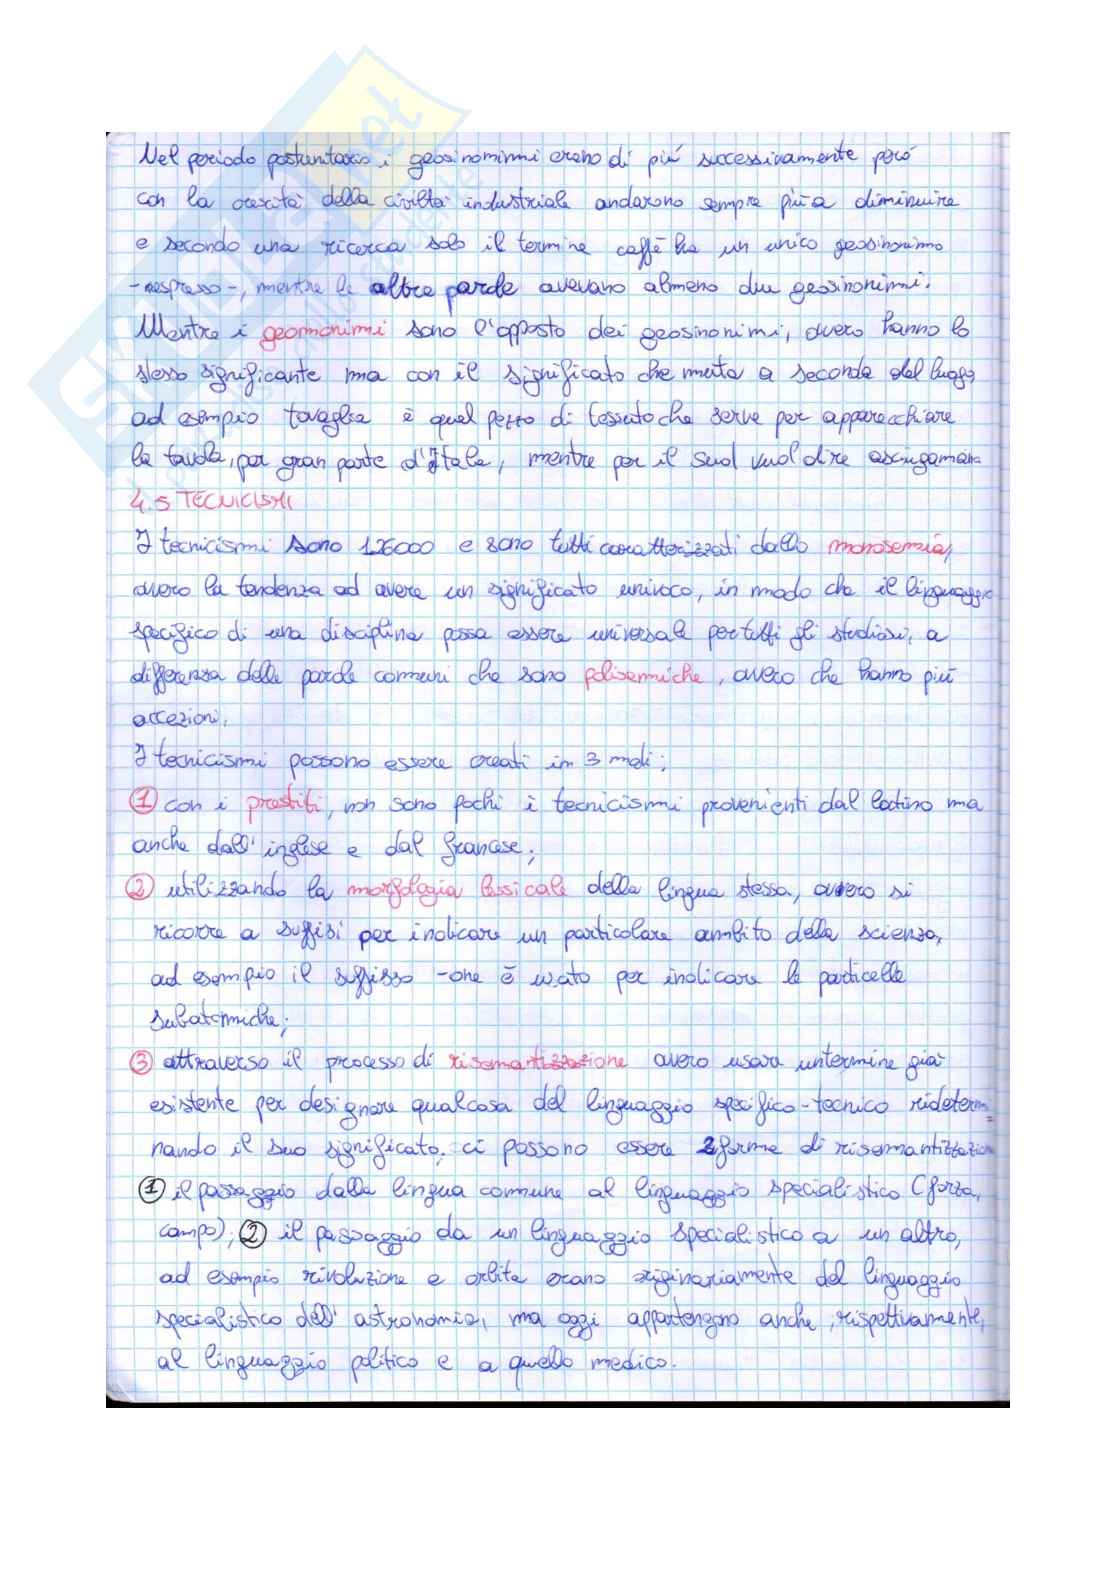 Nel periodo postunitario i geosinonimi erano di più successivamente però
con la crescita della civiltà industriale andarono sempre più a diminuire
e secondo una ricerca solo il termine caffè ha un unico geosinonimo
-nespresso-, mentre le altre parole avevano almeno due geosinonimi.
Mentre i geomonimi sono l'opposto dei geosinonimi, ovvero hanno lo
stesso significante ma con il significato che muta a seconda del luogo,
ad esempio tovaglia è quel pezzo di tessuto che serve per apparecchiare
la tavola, per gran parte d'Italia, mentre per il Sud vuol dire asciugamano
4.5 TECNICISMI
I tecnicismi sono 126000 e sono tutti caratterizzati dallo monosemia,
ovvero la tendenza ad avere un significato univoco, in modo che il linguaggio
specifico di una disciplina possa essere universale per tutti gli studiosi, a
differenza delle parole comuni che sono polisemiche, ovvero che hanno più
accezioni.
I tecnicismi possono essere creati in 3 modi:
1 con i prestiti, non sono pochi i tecnicismi provenienti dal latino ma
anche dall'inglese e dal francese;
2 utilizzando la morfologia lessicale della lingua stessa, ovvero si
ricorre a suffissi per indicare un particolare ambito della scienza,
ad esempio il suffisso -one è usato per indicare le particelle
subatomiche;
3 attraverso il processo di risemantizzazione ovvero usare un termine già
esistente per designare qualcosa del linguaggio specifico-tecnico ridetermi=
nando il suo significato. ci possono essere 2 forme di risemantizzazione
1 il passaggio dalla lingua comune al linguaggio specialistico (forza,
campo); 2 il passaggio da un linguaggio specialistico a un altro,
ad esempio rivoluzione e orbita erano originariamente del linguaggio
specialistico dell'astronomia, ma oggi appartengono anche, rispettivamente,
al linguaggio politico e a quello medico.